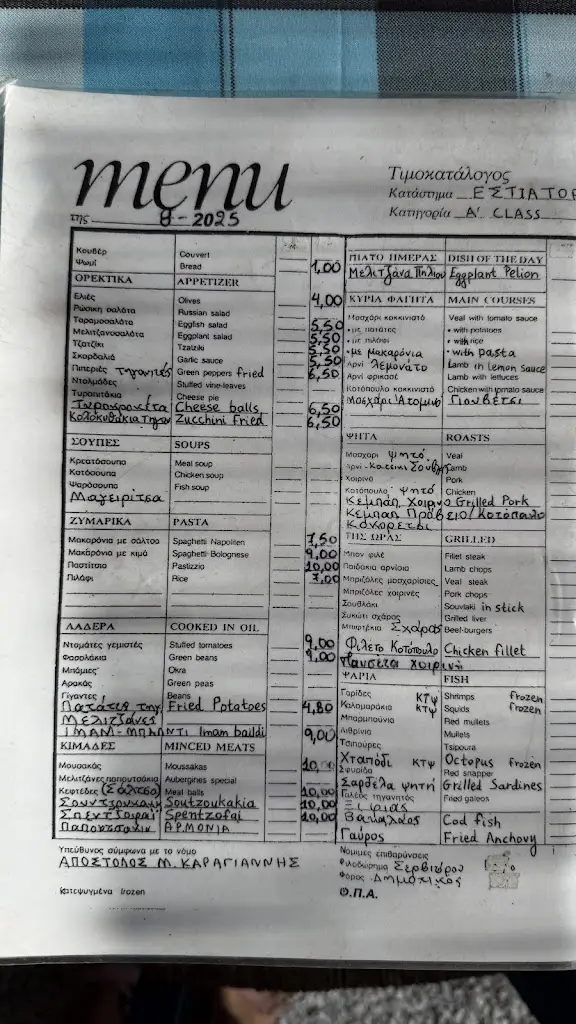 menu
της 9-2025
Τιμοκατάλογος
Κατάστημα ΕΣΤΙΑΤΟΡ
Κατηγορία Α' CLASS
Κουβέρ Couvert
Ψωμί Bread 1,00
ΟΡΕΚΤΙΚΑ APPETIZER
Ελιές Olives 4,00
Ρώσικη σαλάτα Russian salad
Ταραμοσαλάτα Eggfish salad 5,50
Μελιτζανοσαλάτα Eggplant salad 5,50
Τζατζίκι Tzatziki 5,50
Σκορδαλιά Garlic sauce 5,50
Πιπεριές τηγανιτές Green peppers fried 6,50
Ντολμάδες Stuffed vine-leaves
Τυροπιτάκια Cheese pie
Τυροκροκέτα Cheese balls 6,50
Κολοκυθάκια Τηγαν Zucchini fried 6,50
ΣΟΥΠΕΣ SOUPS
Κρεατόσουπα Meat soup
Κοτόσουπα Chicken soup
Ψαρόσουπα Fish soup
Μαγειρίτσα
ΖΥΜΑΡΙΚΑ PASTA
Μακαρόνια με σάλτσα Spaghetti Napoliten 7,50
Μακαρόνια με κιμά Spaghetti Bolognese 9,00
Παστίτσιο Pastizzio 10,00
Πιλάφι Rice 7,00
ΛΑΔΕΡΑ COOKED IN OIL
Ντομάτες γεμιστές Stuffed tomatoes 9,00
Φασολάκια Green beans 9,00
Μπάμιες Okra
Αρακάς Green peas
Γίγαντες Beans
Πατάτες τηγ Fried Potatoes 4,80
Μελιτζάνες
ΙΜΑΜ-ΜΠΑΛΝΤΙ Imam baildi 9,00
ΚΙΜΑΔΕΣ MINCED MEATS
Μουσακάς Moussakas 10,00
Μελιτζάνες παπουτσάκια Aubergines special
Κεφτέδες (Σάλτσα) Meat balls 10,00
Σουτζουκάκια Soutzoukakia 10,00
Σπετζοφάι Spentzofai 10,00
Παπουτσάκια ΑΡΜΟΝΙΑ
Υπεύθυνος σύμφωνα με το νόμο
ΑΠΟΣΤΟΛΟΣ Μ. ΚΑΡΑΓΙΑΝΝΗΣ
κατεψυγμένα frozen
ΠΙΑΤΟ ΗΜΕΡΑΣ DISH OF THE DAY
Μελιτζάνα Πηλίου Eggplant Pelion
ΚΥΡΙΑ ΦΑΓΗΤΑ MAIN COURSES
Μοσχάρι κοκκινιστό Veal with tomato sauce
• με πατάτες • with potatoes
• με πιλάφι • with rice
• με μακαρόνια • with pasta
Αρνί λεμονάτο Lamb in lemon sauce
Αρνί φρικασέ Lamb with lettuces
Κοτόπουλο κοκκινιστό Chicken with tomato sauce
Μοσχάρι Ατομικό Γιουβέτσι
ΨΗΤΑ ROASTS
Μοσχάρι ψητό Veal
Αρνί Lamb
Χοιρινό Pork
Κοτόπουλο ψητό Chicken
Κεμπάπ Χοιρινό Grilled Pork
Κεμπάπ Πρόβειο/Κοτόπουλο
Κοκορέτσι
ΤΗΣ ΩΡΑΣ GRILLED
Μπον φιλέ Fillet steak
Παϊδάκια αρνίσια Lamb chops
Μπριζόλες μοσχαρίσιες Veal steak
Μπριζόλες χοιρινές Pork chops
Σουβλάκι Souvlaki in stick
Συκώτι σχάρας Grilled liver
Μπιφτέκια Σχάρας Beef-burgers
Φιλέτο Κοτόπουλο Chicken fillet
Πανσέτα χοιρινή
ΨΑΡΙΑ FISH
Γαρίδες ΚΤΨ Shrimps frozen
Καλαμαράκια ΚΤΨ Squids frozen
Μπαρμπούνια Red mullets
Λιθρίνια Mullets
Τσιπούρες Tsipoura
Χταπόδι ΚΤΨ Octopus frozen
Συναγρίδα Red snapper
Σαρδέλα ψητή Grilled Sardines
Γαλέος τηγανητός Fried galeos
Ξιφίας
Βακαλάος Cod fish
Γαύρος Fried Anchovy
Νόμιμες επιβαρύνσεις
Φιλοδώρημα Σερβιτόρου
Φόρος Δημοτικός
Φ.Π.Α.